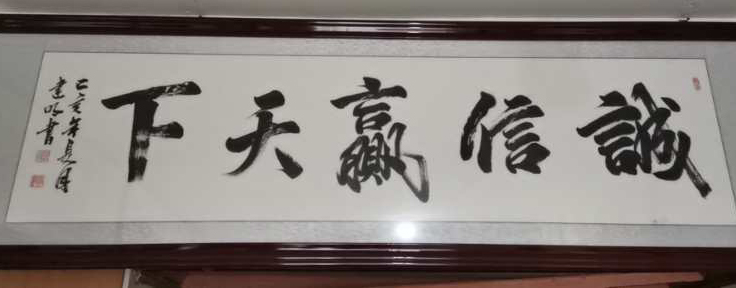 誠信贏天下
己亥年夏月
建明書